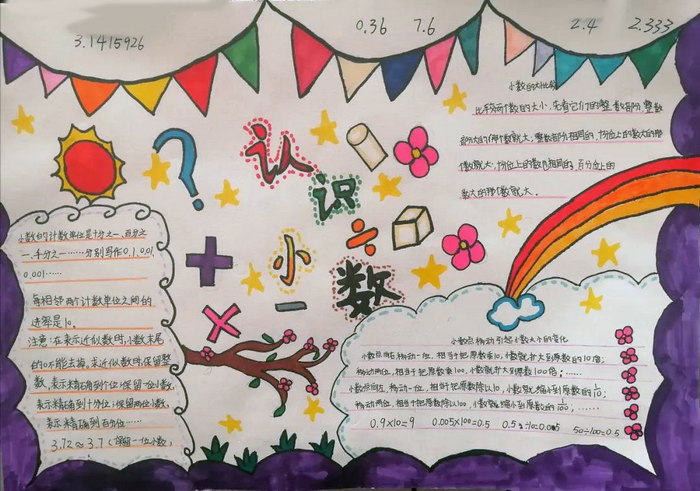 3.1415926
0.36 7.6
2.4 2.333
小数的大小比较
比较两个数的大小,先看它们的整数部分,整数
部分大的那个数就大,整数部分相同的,十分位上的数大的那
个数就大,十分位上的数相同的,百分位上的
数大的那个数就大。
认识
小数
小数的计数单位是十分之一、百分之
一、千分之一……分别写作0.1、0.01、
0.001……
每相邻两个计数单位之间的
进率是10。
注意:在表示近似数时,小数末尾
的0不能去掉,求近似数时,保留整
数,表示精确到个位,保留一位小数,
表示精确到十分位;保留两位小数,
表示精确到百分位……
3.72≈3.7(保留一位小数)
小数点移动引起小数大小的变化
小数点向右移动一位,相当于把原数乘10,小数就扩大到原数的10倍;
移动两位,相当于把原数乘100,小数就扩大到原数100倍;……
小数点向左移动一位,相当于把原数除以10,小数就缩小到原数的1/10;
移动两位,相当于把原数除以100,小数就缩小到原数的1/100;……
0.9×10=9 0.005×100=0.5 0.5÷10=0.05 50÷100=0.5